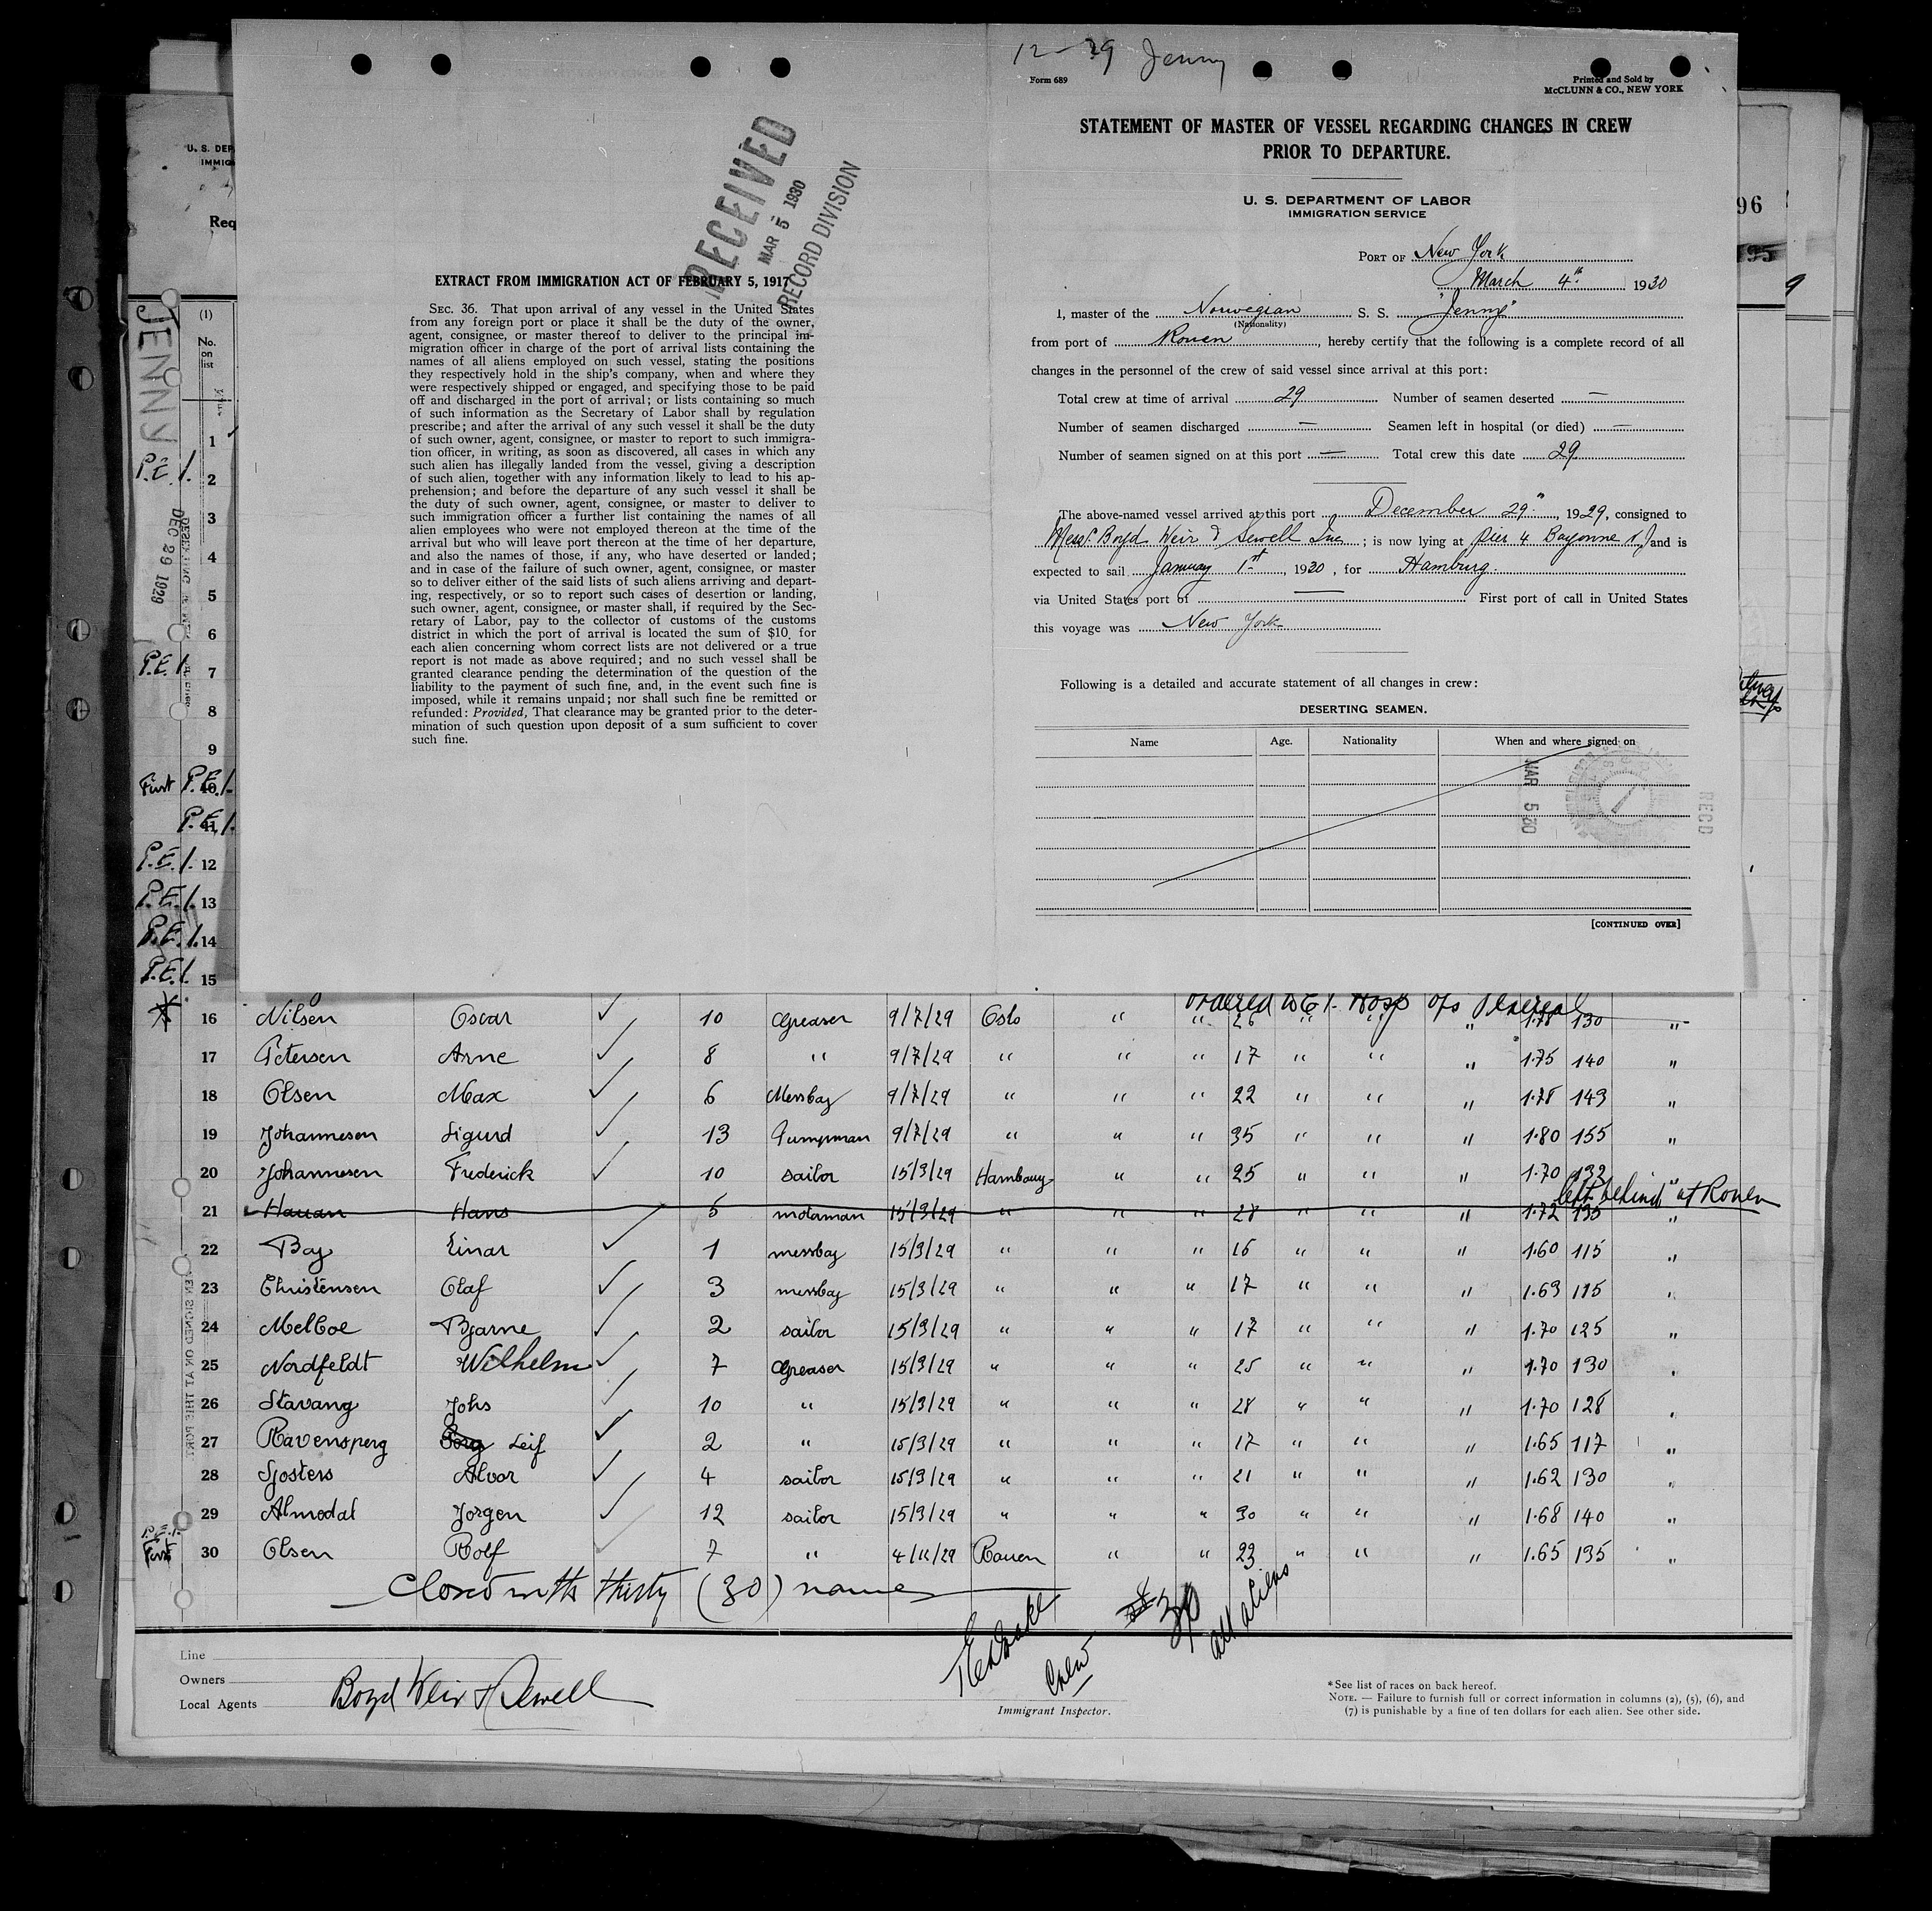 12-29 Jenny
Form 689
Printed and Sold by
McCLUNN & CO., NEW YORK
STATEMENT OF MASTER OF VESSEL REGARDING CHANGES IN CREW
PRIOR TO DEPARTURE.
U. S. DEPARTMENT OF LABOR
IMMIGRATION SERVICE
PORT OF New York
March 4th 1930
I, master of the Norwegian S. S. "Jenny"
(Nationality)
from port of Rouen, hereby certify that the following is a complete record of all
changes in the personnel of the crew of said vessel since arrival at this port:
Total crew at time of arrival 29 Number of seamen deserted —
Number of seamen discharged — Seamen left in hospital (or died) —
Number of seamen signed on at this port — Total crew this date 29
The above-named vessel arrived at this port December 29th, 1929, consigned to
Messrs. Boyd Weir & Sewell Inc; is now lying at Pier 4 Bayonne and is
expected to sail January 1st, 1930, for Hamburg.
via United States port of — First port of call in United States
this voyage was New York
Following is a detailed and accurate statement of all changes in crew:
DESERTING SEAMEN.
Name Age. Nationality When and where signed on
MAR 5 30
RECD
[CONTINUED OVER]
RECEIVED
MAR 5 1930
RECORD DIVISION
EXTRACT FROM IMMIGRATION ACT OF FEBRUARY 5, 1917
SEC. 36. That upon arrival of any vessel in the United States
from any foreign port or place it shall be the duty of the owner,
agent, consignee, or master thereof to deliver to the principal im-
migration officer in charge of the port of arrival lists containing the
names of all aliens employed on such vessel, stating the positions
they respectively hold in the ship's company, when and where they
were respectively shipped or engaged, and specifying those to be paid
off and discharged in the port of arrival; or lists containing so much
of such information as the Secretary of Labor shall by regulation
prescribe; and after the arrival of any such vessel it shall be the duty
of such owner, agent, consignee, or master to report to such immigra-
tion officer, in writing, as soon as discovered, all cases in which any
such alien has illegally landed from the vessel, giving a description
of such alien, together with any information likely to lead to his ap-
prehension; and before the departure of any such vessel it shall be
the duty of such owner, agent, consignee, or master to deliver to
such immigration officer a further list containing the names of all
alien employees who were not employed thereon at the time of the
arrival but who will leave port thereon at the time of her departure,
and also the names of those, if any, who have deserted or landed;
and in case of the failure of such owner, agent, consignee, or master
so to deliver either of the said lists of such aliens arriving and depart-
ing, respectively, or so to report such cases of desertion or landing,
such owner, agent, consignee, or master shall, if required by the Sec-
retary of Labor, pay to the collector of customs of the customs
district in which the port of arrival is located the sum of $10 for
each alien concerning whom correct lists are not delivered or a true
report is not made as above required; and no such vessel shall be
granted clearance pending the determination of the question of the
liability to the payment of such fine, and, in the event such fine is
imposed, while it remains unpaid; nor shall such fine be remitted or
refunded: Provided, That clearance may be granted prior to the deter-
mination of such question upon deposit of a sum sufficient to cover
such fine.
U. S. DEP
IMMIG
Req
96
95
9
JENNY
DEC 29 1929
(1)
No. on list
1
P.E.I. 2
3
4
5
6
P.E.I. 7
8
9
First P.E.I. 10
P.E.I. 11
P.E.I. 12
P.E.I. 13
P.E.I. 14
P.E.I. 15
ordered to E.I. Hosp
16 Nilsen Oscar 10 Greaser 9/7/29 Oslo " " 26 " " " 1.78 130 "
17 Petersen Arne 8 " 9/7/29 " " " 17 " " " 1.75 140 "
18 Olsen Max 6 Messboy 9/7/29 " " " 22 " " " 1.78 149 "
19 Johannesen Sigurd 13 Pumpman 9/7/29 " " " 35 " " " 1.80 155 "
20 Johannesen Frederick 10 sailor 15/9/29 Hambourg " " 25 " " " 1.70 132 "
left behind at Rouen
21 Hauan Hans 5 motorman 15/9/29 " " " 28 " " " 1.72 135 "
22 Boy Einar 1 messboy 15/9/29 " " " 16 " " " 1.60 115 "
23 Christensen Olaf 3 messboy 15/9/29 " " " 17 " " " 1.63 115 "
24 Melboe Bjarne 2 sailor 15/9/29 " " " 17 " " " 1.70 125 "
25 Nordfeldt Wilhelm 7 Greaser 15/9/29 " " " 25 " " " 1.70 130 "
26 Stavang Johs 10 " 15/9/29 " " " 28 " " " 1.70 128 "
27 Ravensperg Leif 2 " 15/9/29 " " " 17 " " " 1.65 117 "
28 Sjosters Alvor 4 sailor 15/9/29 " " " 21 " " " 1.62 130 "
29 Almodal Jorgen 12 sailor 15/9/29 " " " 30 " " " 1.68 140 "
P.E.I. First 30 Olsen Rolf 7 " 4/11/29 Rouen " " 23 " " " 1.65 135 "
Closed with thirty (30) names
Crew
30
all aliens
Line
Owners
Local Agents Boyd Weir & Sewell
Immigrant Inspector.
*See list of races on back hereof.
NOTE. — Failure to furnish full or correct information in columns (2), (5), (6), and
(7) is punishable by a fine of ten dollars for each alien. See other side.